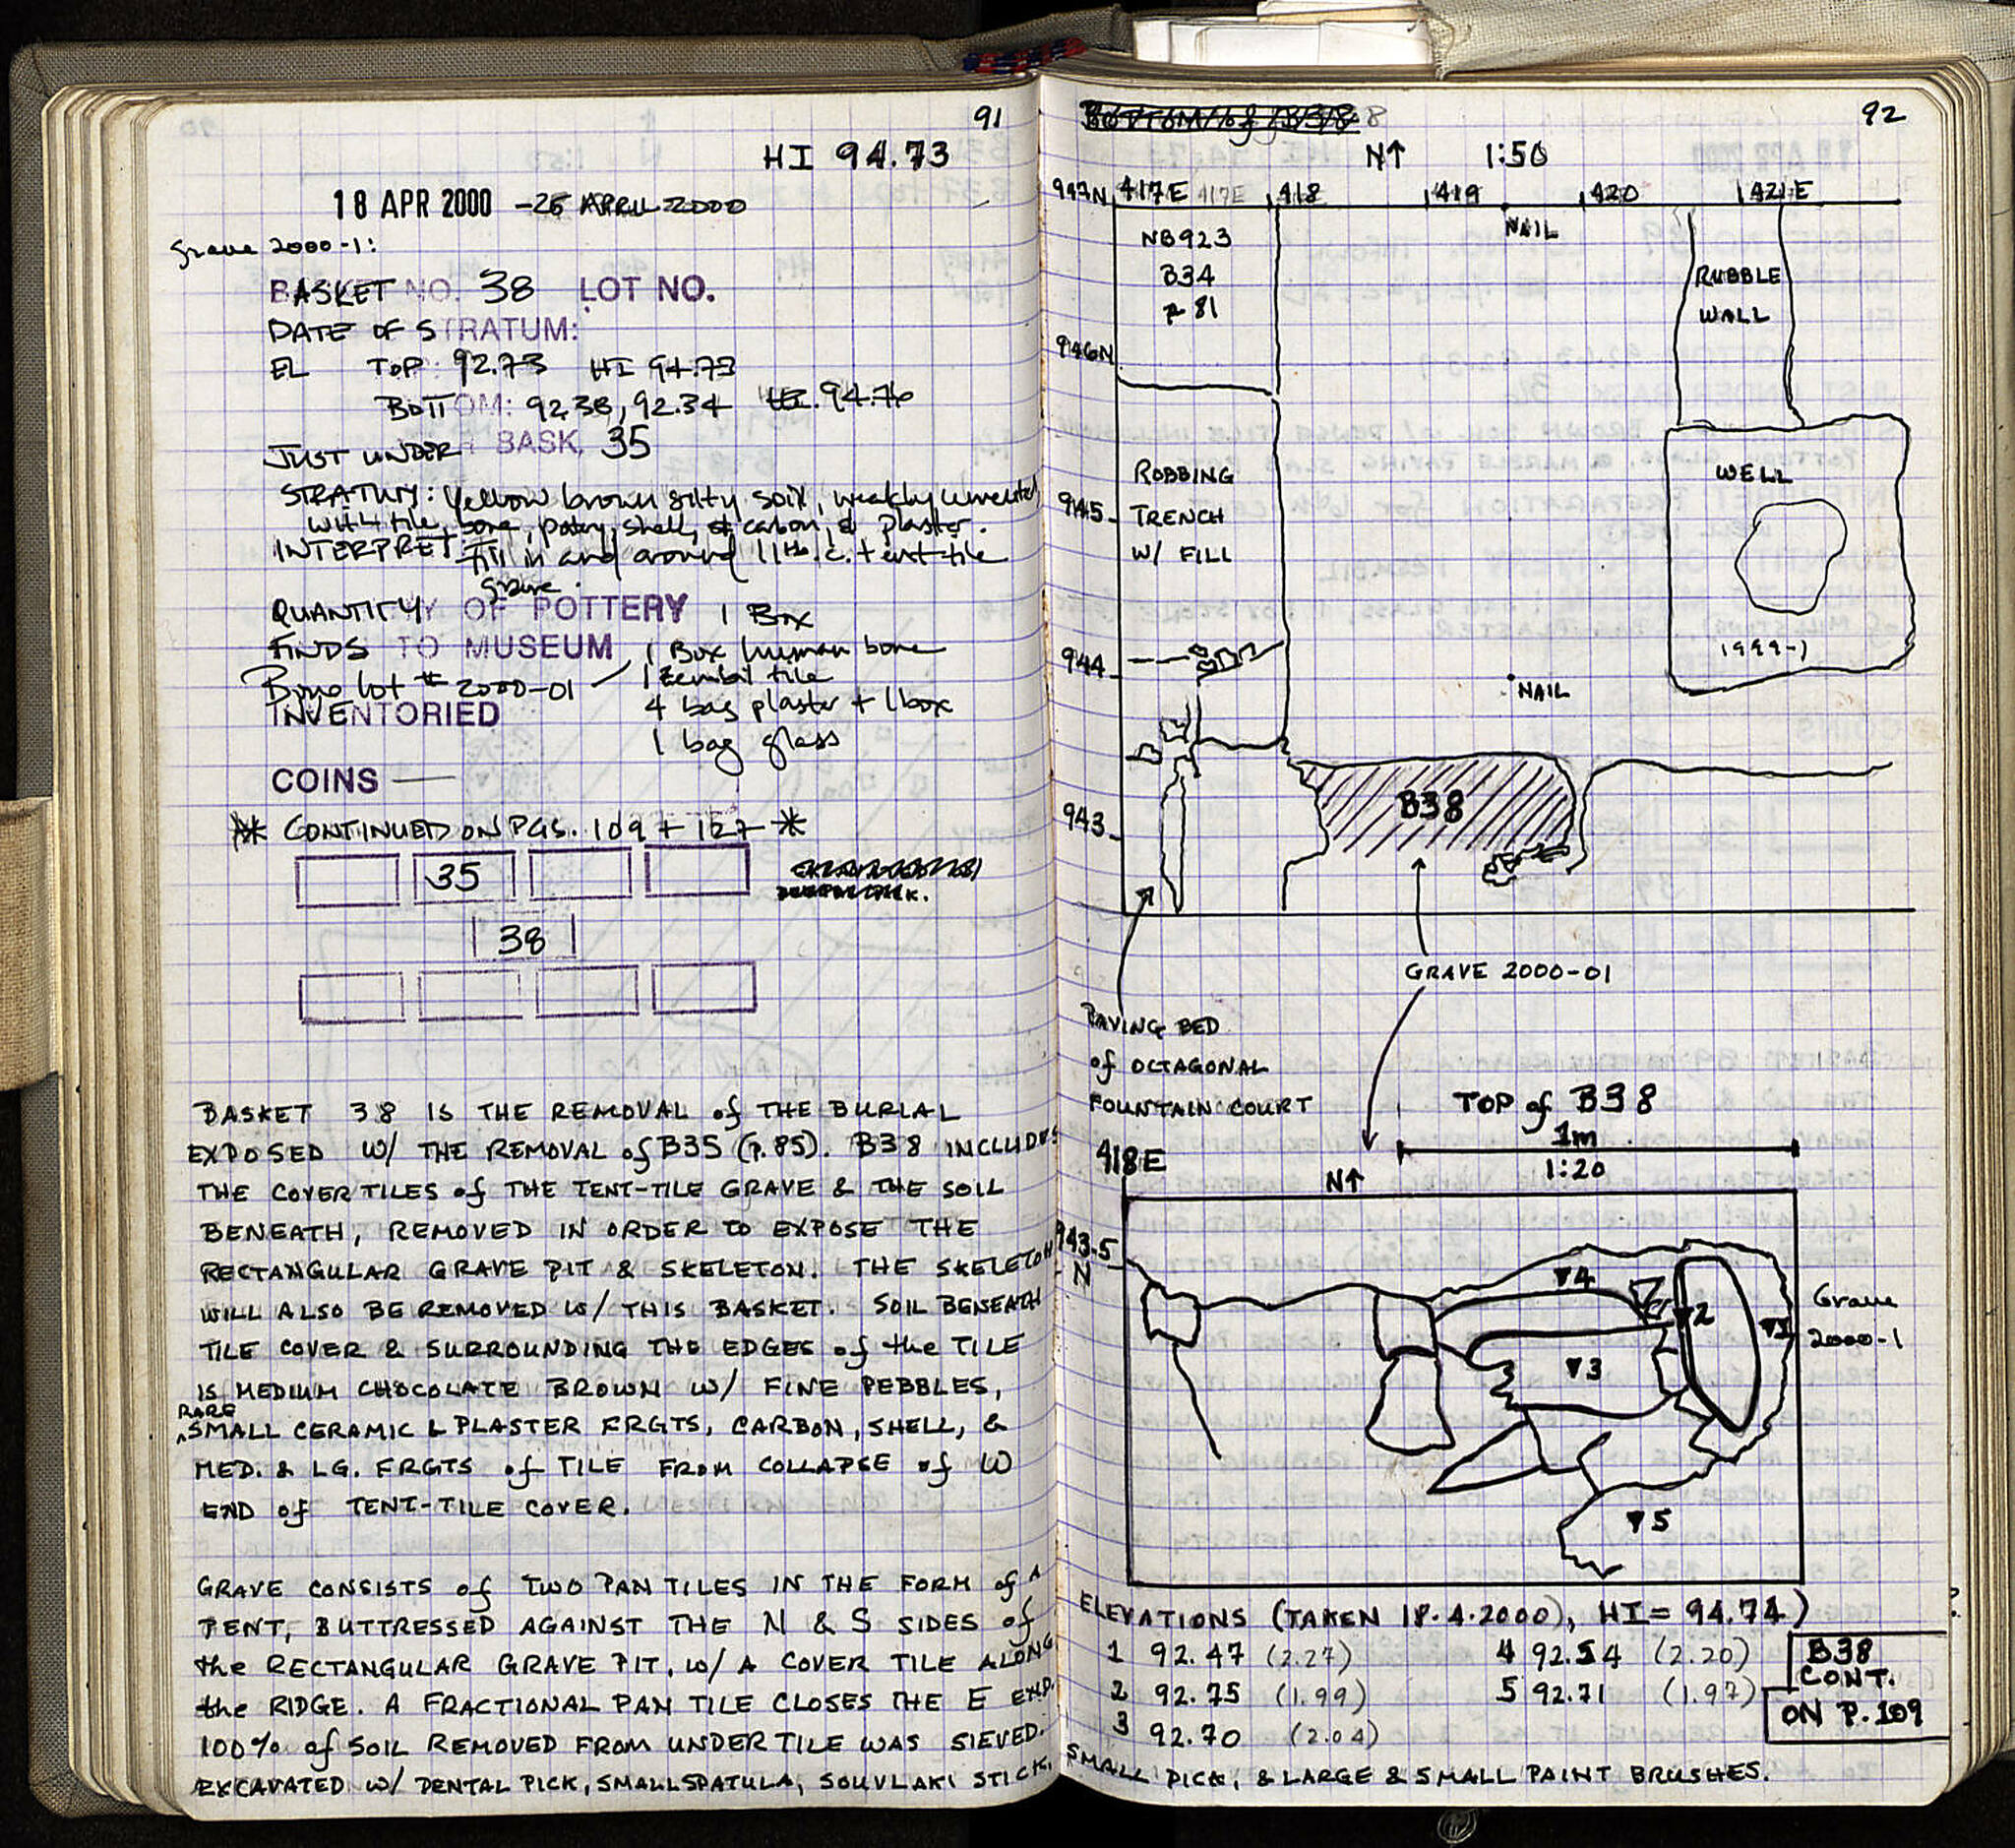 91
HI 94.73
18 APR 2000 - 26 APRIL 2000
Grave 2000-1:
BASKET NO. 38 LOT NO.
DATE OF STRATUM:
EL TOP: 92.73 HI 94.73
BOTTOM: 92.38, 92.34 HI. 94.76
JUST UNDER BASK. 35
STRATUM: Yellow brown silty soil, weakly cemented
with tile, bone, pottery, shell, carbon, & plaster.
INTERPRET: Fill in and around 11th. c. tent-tile
grave.
QUANTITY OF POTTERY 1 Box
FINDS TO MUSEUM 1 Box human bone
Bone lot # 2000-01 1 tile
INVENTORIED 4 bag plaster + 1 box
1 bag glass
COINS —
* CONTINUED ON PGS. 109 + 127 *
35
38
BASKET 38 IS THE REMOVAL of THE BURIAL
EXPOSED W/ THE REMOVAL of B35 (P. 85). B38 INCLUDES
THE COVER TILES of THE TENT-TILE GRAVE & THE SOIL
BENEATH, REMOVED IN ORDER TO EXPOSE THE
RECTANGULAR GRAVE PIT & SKELETON. THE SKELETON
WILL ALSO BE REMOVED W/ THIS BASKET. SOIL BENEATH
TILE COVER & SURROUNDING THE EDGES of the TILE
IS MEDIUM CHOCOLATE BROWN W/ FINE PEBBLES,
RARE
^SMALL CERAMIC & PLASTER FRGTS, CARBON, SHELL, &
MED. & LG. FRGTS of TILE FROM COLLAPSE of W
END of TENT-TILE COVER.
GRAVE CONSISTS of TWO PAN TILES IN THE FORM of A
TENT, BUTTRESSED AGAINST THE N & S SIDES of
the RECTANGULAR GRAVE PIT, W/ A COVER TILE ALONG
the RIDGE. A FRACTIONAL PAN TILE CLOSES THE E END.
100% of SOIL REMOVED FROM UNDER TILE WAS SIEVED.
EXCAVATED W/ DENTAL PICK, SMALL SPATULA, SOUVLAKI STICK,
92
BOTTOM of B38
N↑ 1:50
947N 417E 417E 418 419 420 421E
NAIL
NB923
B34
P 81
RUBBLE
WALL
946N
ROBBING
TRENCH
W/ FILL
945
WELL
1999-1
944
NAIL
943
B38
GRAVE 2000-01
PAVING BED
of OCTAGONAL
FOUNTAIN COURT
TOP of B38
1m
1:20
418E
N↑
943.5
N
▾4
▾2
▾1
▾3
▾5
Grave
2000-1
ELEVATIONS (TAKEN 18.4.2000), HI = 94.74)
1 92.47 (2.27) 4 92.54 (2.20)
2 92.75 (1.99) 5 92.71 (1.97)
3 92.70 (2.04)
B38
CONT.
ON P. 109
SMALL PICK, & LARGE & SMALL PAINT BRUSHES.